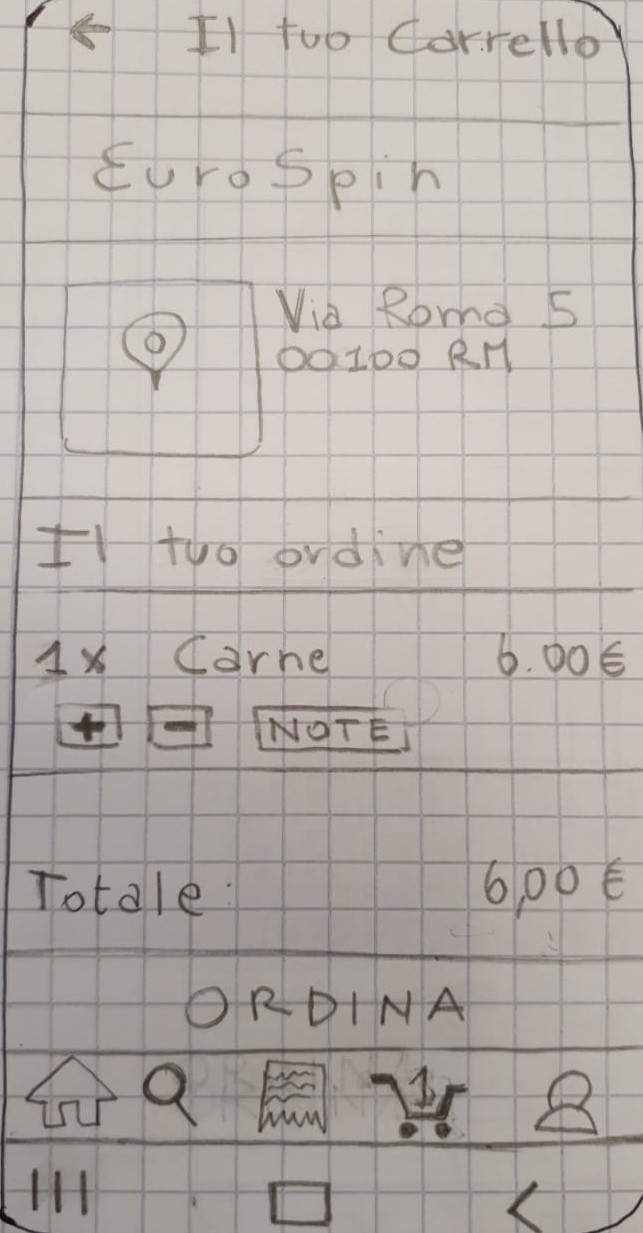 ← Il tuo Carrello
EuroSpin
Via Roma 5
00100 RM
Il tuo ordine
1x Carne 6.00€
+ - NOTE
Totale: 6,00 €
ORDINA
1